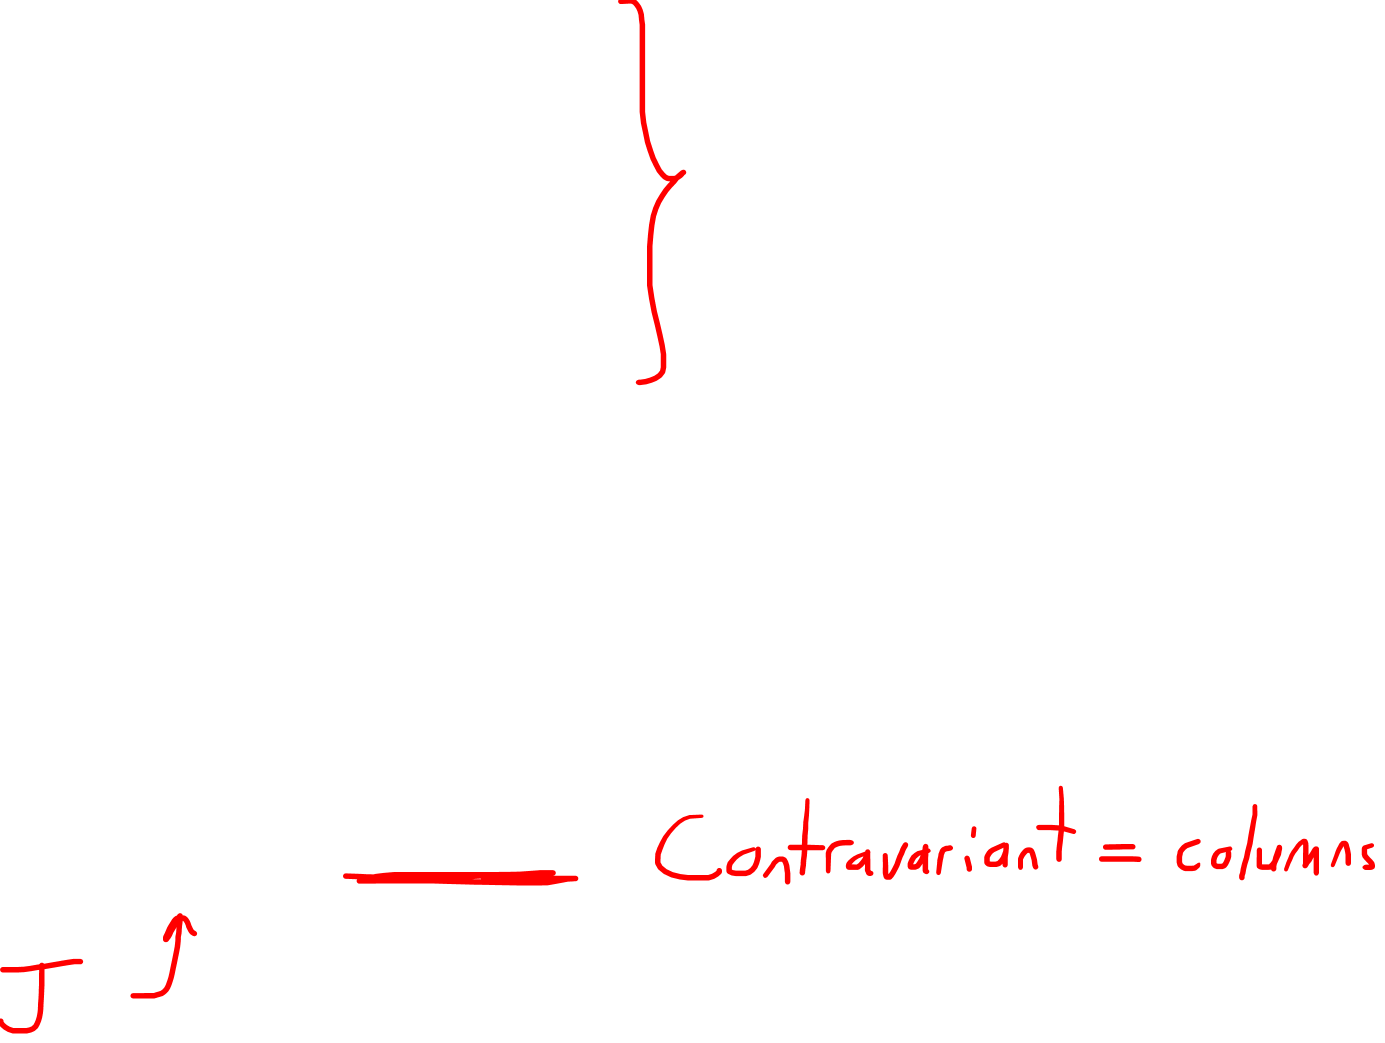 Contravariant = columns
J